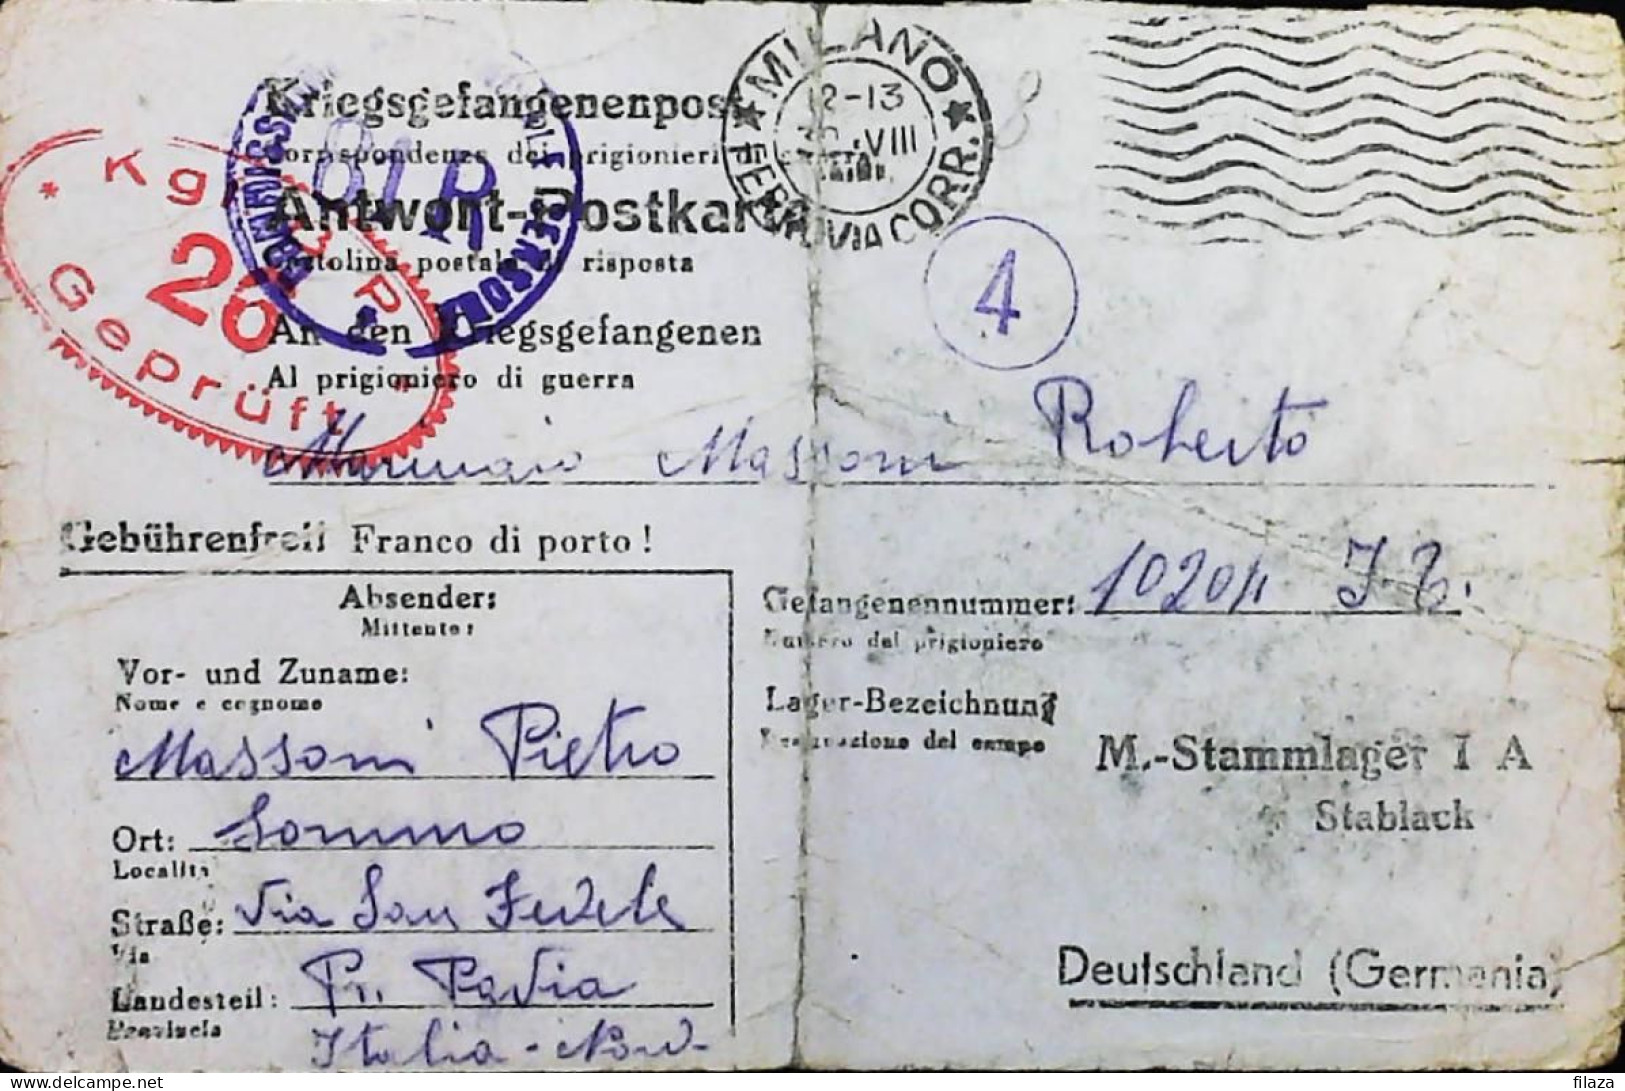 Kriegsgefangenenpost
Corrispondenza dei prigionieri di guerra
Antwort-Postkarte
Cartolina postale di risposta
An den Kriegsgefangenen
Al prigioniero di guerra
Marinaio Massoni Roberto
Gebührenfrei! Franco di porto!
Absender:
Mittente:
Vor- und Zuname:
Nome e cognome
Massoni Pietro
Ort: Sommo
Località
Straße: Via San Fedele
Via
Landesteil: Pr. Pavia
Provincia
Italia - Nord-
Gefangenennummer:
Numero del prigioniero
Lager-Bezeichnung
del campo
M.-Stammlager I A
Stablack
Deutschland (Germania)
MILANO
12-13
VIII
FERROVIA CORR.
4
8
Kgf
26
Geprüft
61 R
filaza